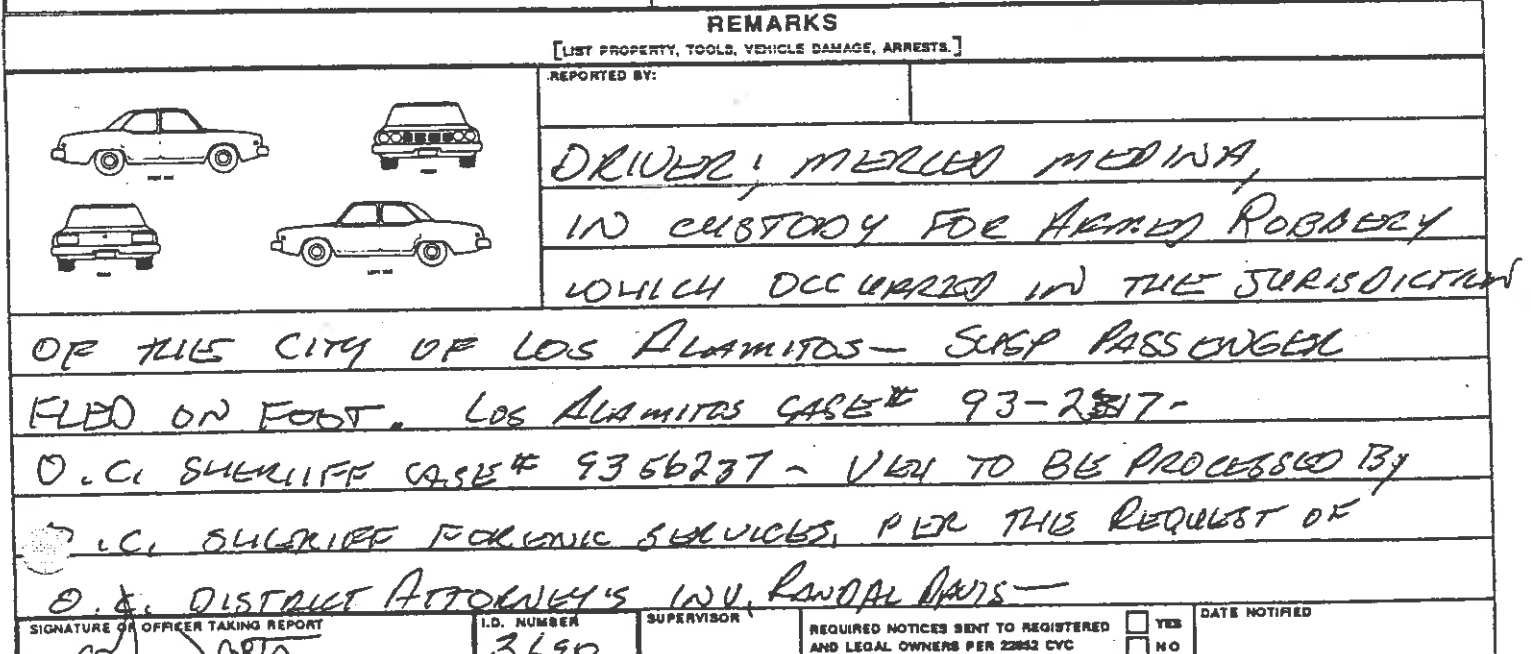 REMARKS
[LIST PROPERTY, TOOLS, VEHICLE DAMAGE, ARRESTS.]
REPORTED BY:
DRIVER; MERCED MEDINA,
IN CUSTODY FOR ARMED ROBBERY
WHICH OCCURRED IN THE JURISDICTION
OF THE CITY OF LOS ALAMITOS— SUSP PASSENGER
FLED ON FOOT. LOS ALAMITOS CASE#
O.C. SHERIFF CASE# 9356237 - VEH TO BE PROCESSED BY
O.C. SHERIFF FORENIC SERVICES, PER THE REQUEST OF
O.C. DISTRICT ATTORNEY'S INV, RANDAL DAVIS—
SIGNATURE OF OFFICER TAKING REPORT
I.D. NUMBER
SUPERVISOR
REQUIRED NOTICES SENT TO REGISTERED
AND LEGAL OWNERS PER 22852 CVC
YES
NO
DATE NOTIFIED
3690